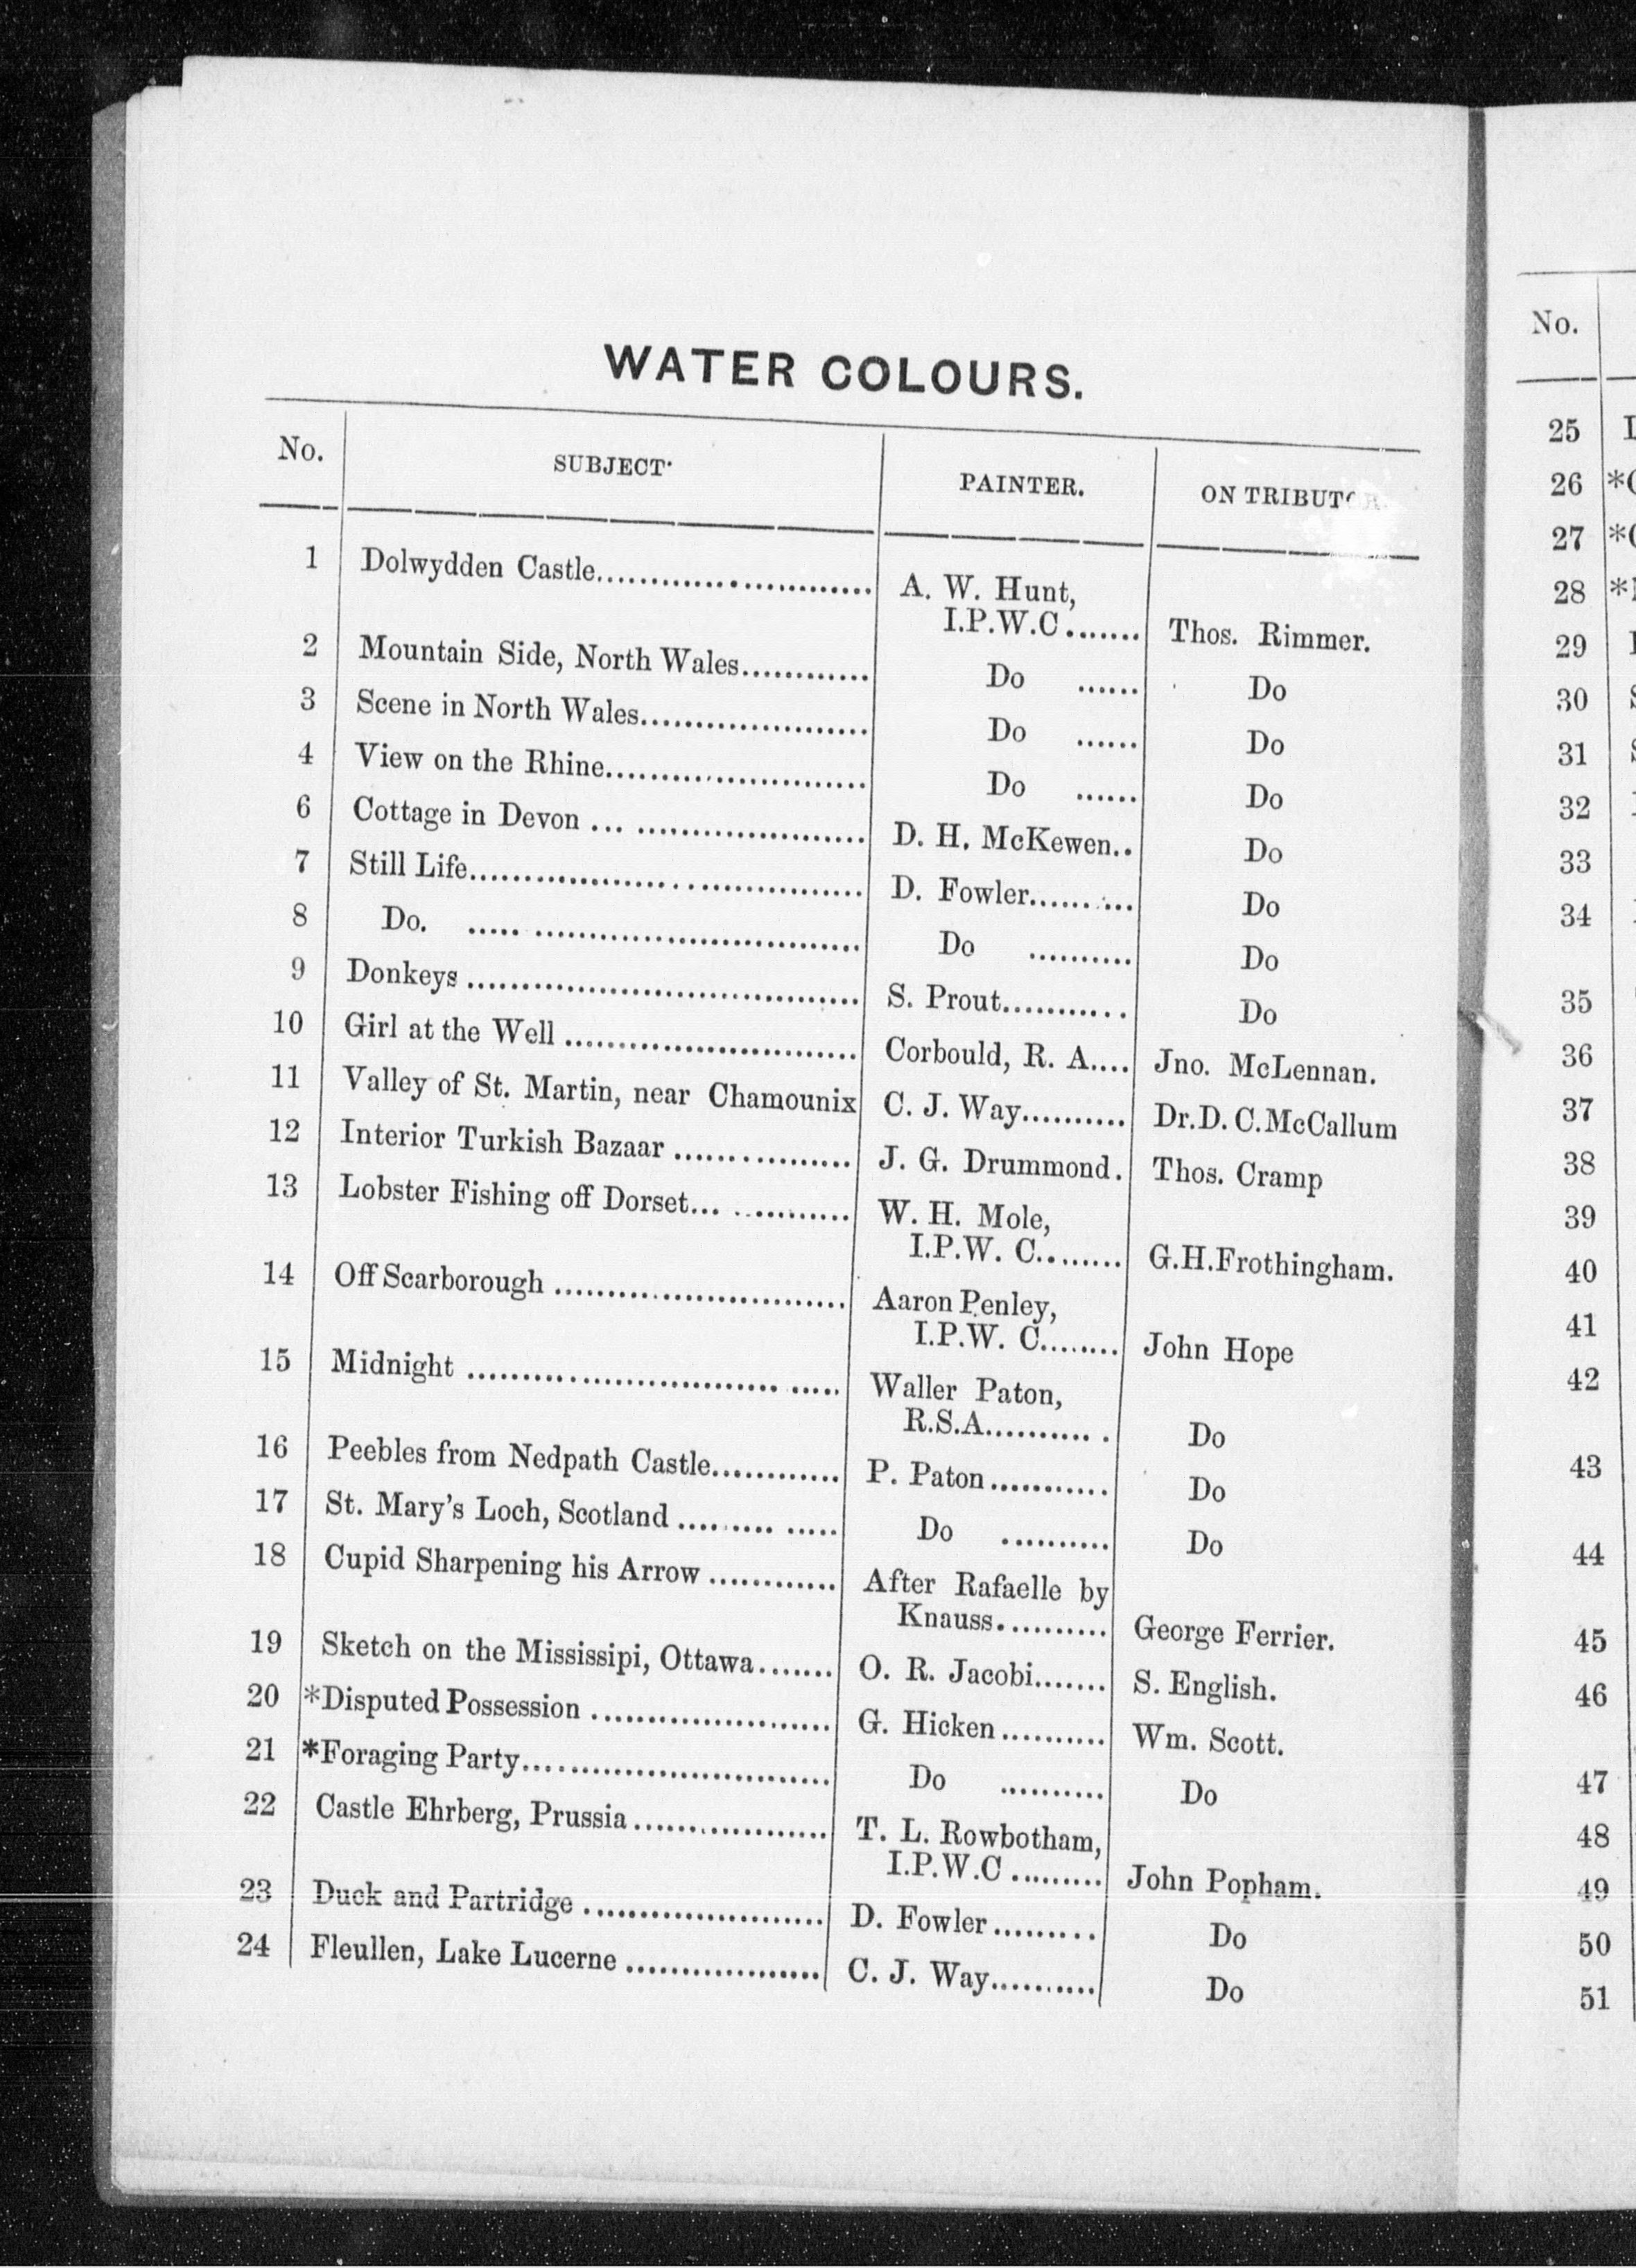 WATER COLOURS.
No. SUBJECT. PAINTER. ON TRIBUTOR.
1 Dolwydden Castle.............................. A. W. Hunt,
I.P.W.C....... Thos. Rimmer.
2 Mountain Side, North Wales............. Do ...... Do
3 Scene in North Wales....................... Do ...... Do
4 View on the Rhine.......................... Do ...... Do
6 Cottage in Devon ... ...................... D. H. McKewen.. Do
7 Still Life........................................ D. Fowler.......... Do
8 Do. ..... .................................. Do .......... Do
9 Donkeys ........................................ S. Prout........... Do
10 Girl at the Well .............................. Corbould, R. A.... Jno. McLennan.
11 Valley of St. Martin, near Chamounix C. J. Way.......... Dr.D.C.McCallum
12 Interior Turkish Bazaar .................. J. G. Drummond. Thos. Cramp
13 Lobster Fishing off Dorset... ............ W. H. Mole,
I.P.W. C........ G.H.Frothingham.
14 Off Scarborough .............................. Aaron Penley,
I.P.W. C........ John Hope
15 Midnight ................................ ..... Waller Paton,
R.S.A.......... . Do
16 Peebles from Nedpath Castle............ P. Paton ........... Do
17 St. Mary's Loch, Scotland .......... ..... Do .......... Do
18 Cupid Sharpening his Arrow ............ After Rafaelle by
Knauss........... George Ferrier.
19 Sketch on the Mississipi, Ottawa....... O. R. Jacobi....... S. English.
20 *Disputed Possession ........................ G. Hicken .......... Wm. Scott.
21 *Foraging Party............................... Do .......... Do
22 Castle Ehrberg, Prussia .................... T. L. Rowbotham,
I.P.W.C ......... John Popham.
23 Duck and Partridge ........................ D. Fowler ......... Do
24 Fleullen, Lake Lucerne .................... C. J. Way.......... Do
No.
25
26 *
27 *
28 *
29
30
31
32
33
34
35
36
37
38
39
40
41
42
43
44
45
46
47
48
49
50
51